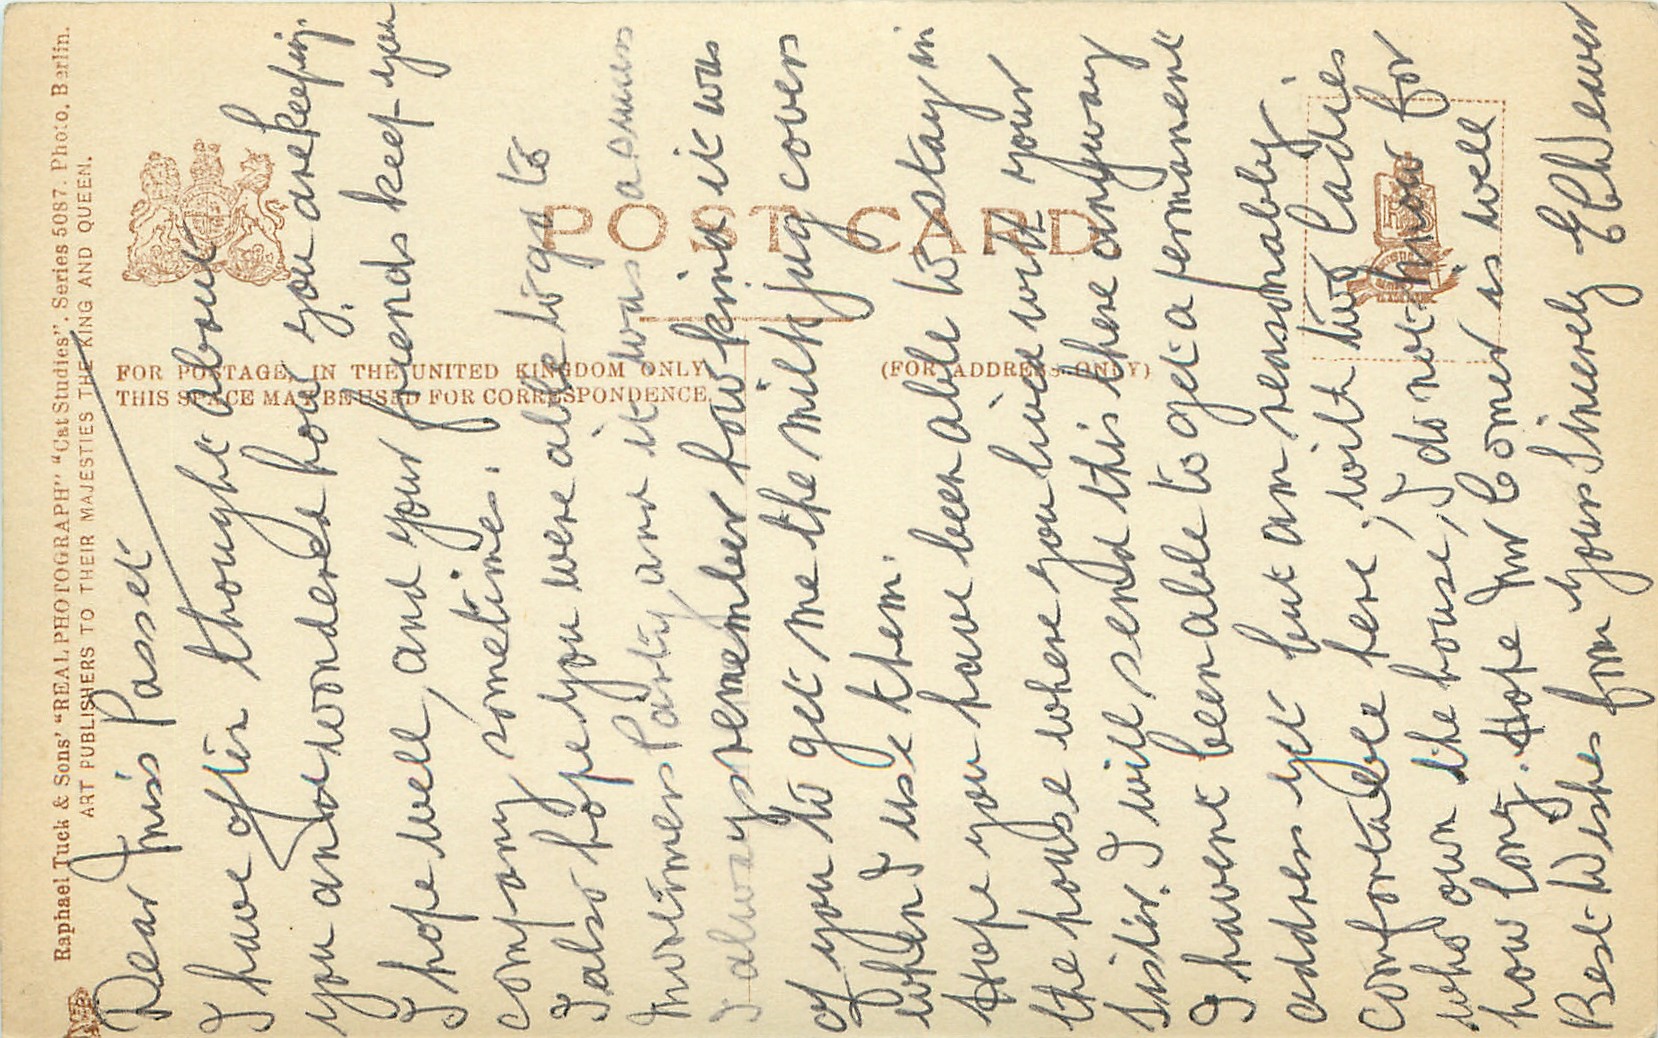 Raphael Tuck & Sons' "REAL PHOTOGRAPH" "Cat Studies". Series 5087. Photo, Berlin.
ART PUBLISHERS TO THEIR MAJESTIES THE KING AND QUEEN.
POST CARD
FOR POSTAGE, IN THE UNITED KINGDOM ONLY
THIS SPACE MAY BE USED FOR CORRESPONDENCE.
(FOR ADDRESS ONLY)
Dear Miss Passet
I have often thought about
you and wondered how you are keeping.
I hope well, and your friends keep you
company sometimes.
I also hope you were able to go to
Mortimers Party, and it was a
I always remember how kind it was
of you to get me the milk jug covers
when I use them.
Hope you have been able to stay in
the house where you lived with your
sister. I will send this there anyway
I havent been able to get a permanent
address yet but am reasonably
comfortable here, with two Ladies
who own the house, I do not know for
how long. Hope Mr Comer is well
Best Wishes from Yours Sincerely